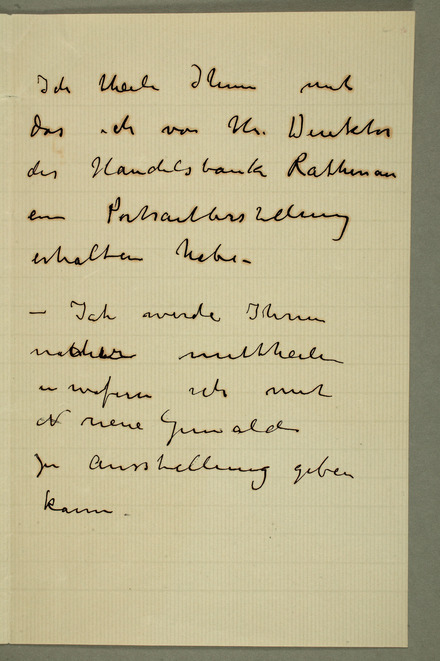 Ich theile Ihnen mit
das ich von Hr. Direktor
der Handelsbank Rathenau
ein Portraitbestellung
erhalten habe.
– Ich werde Ihnen
mittheilen
inwofern ich mit
neue Gemälde
zu Ausstellung geben
kann.